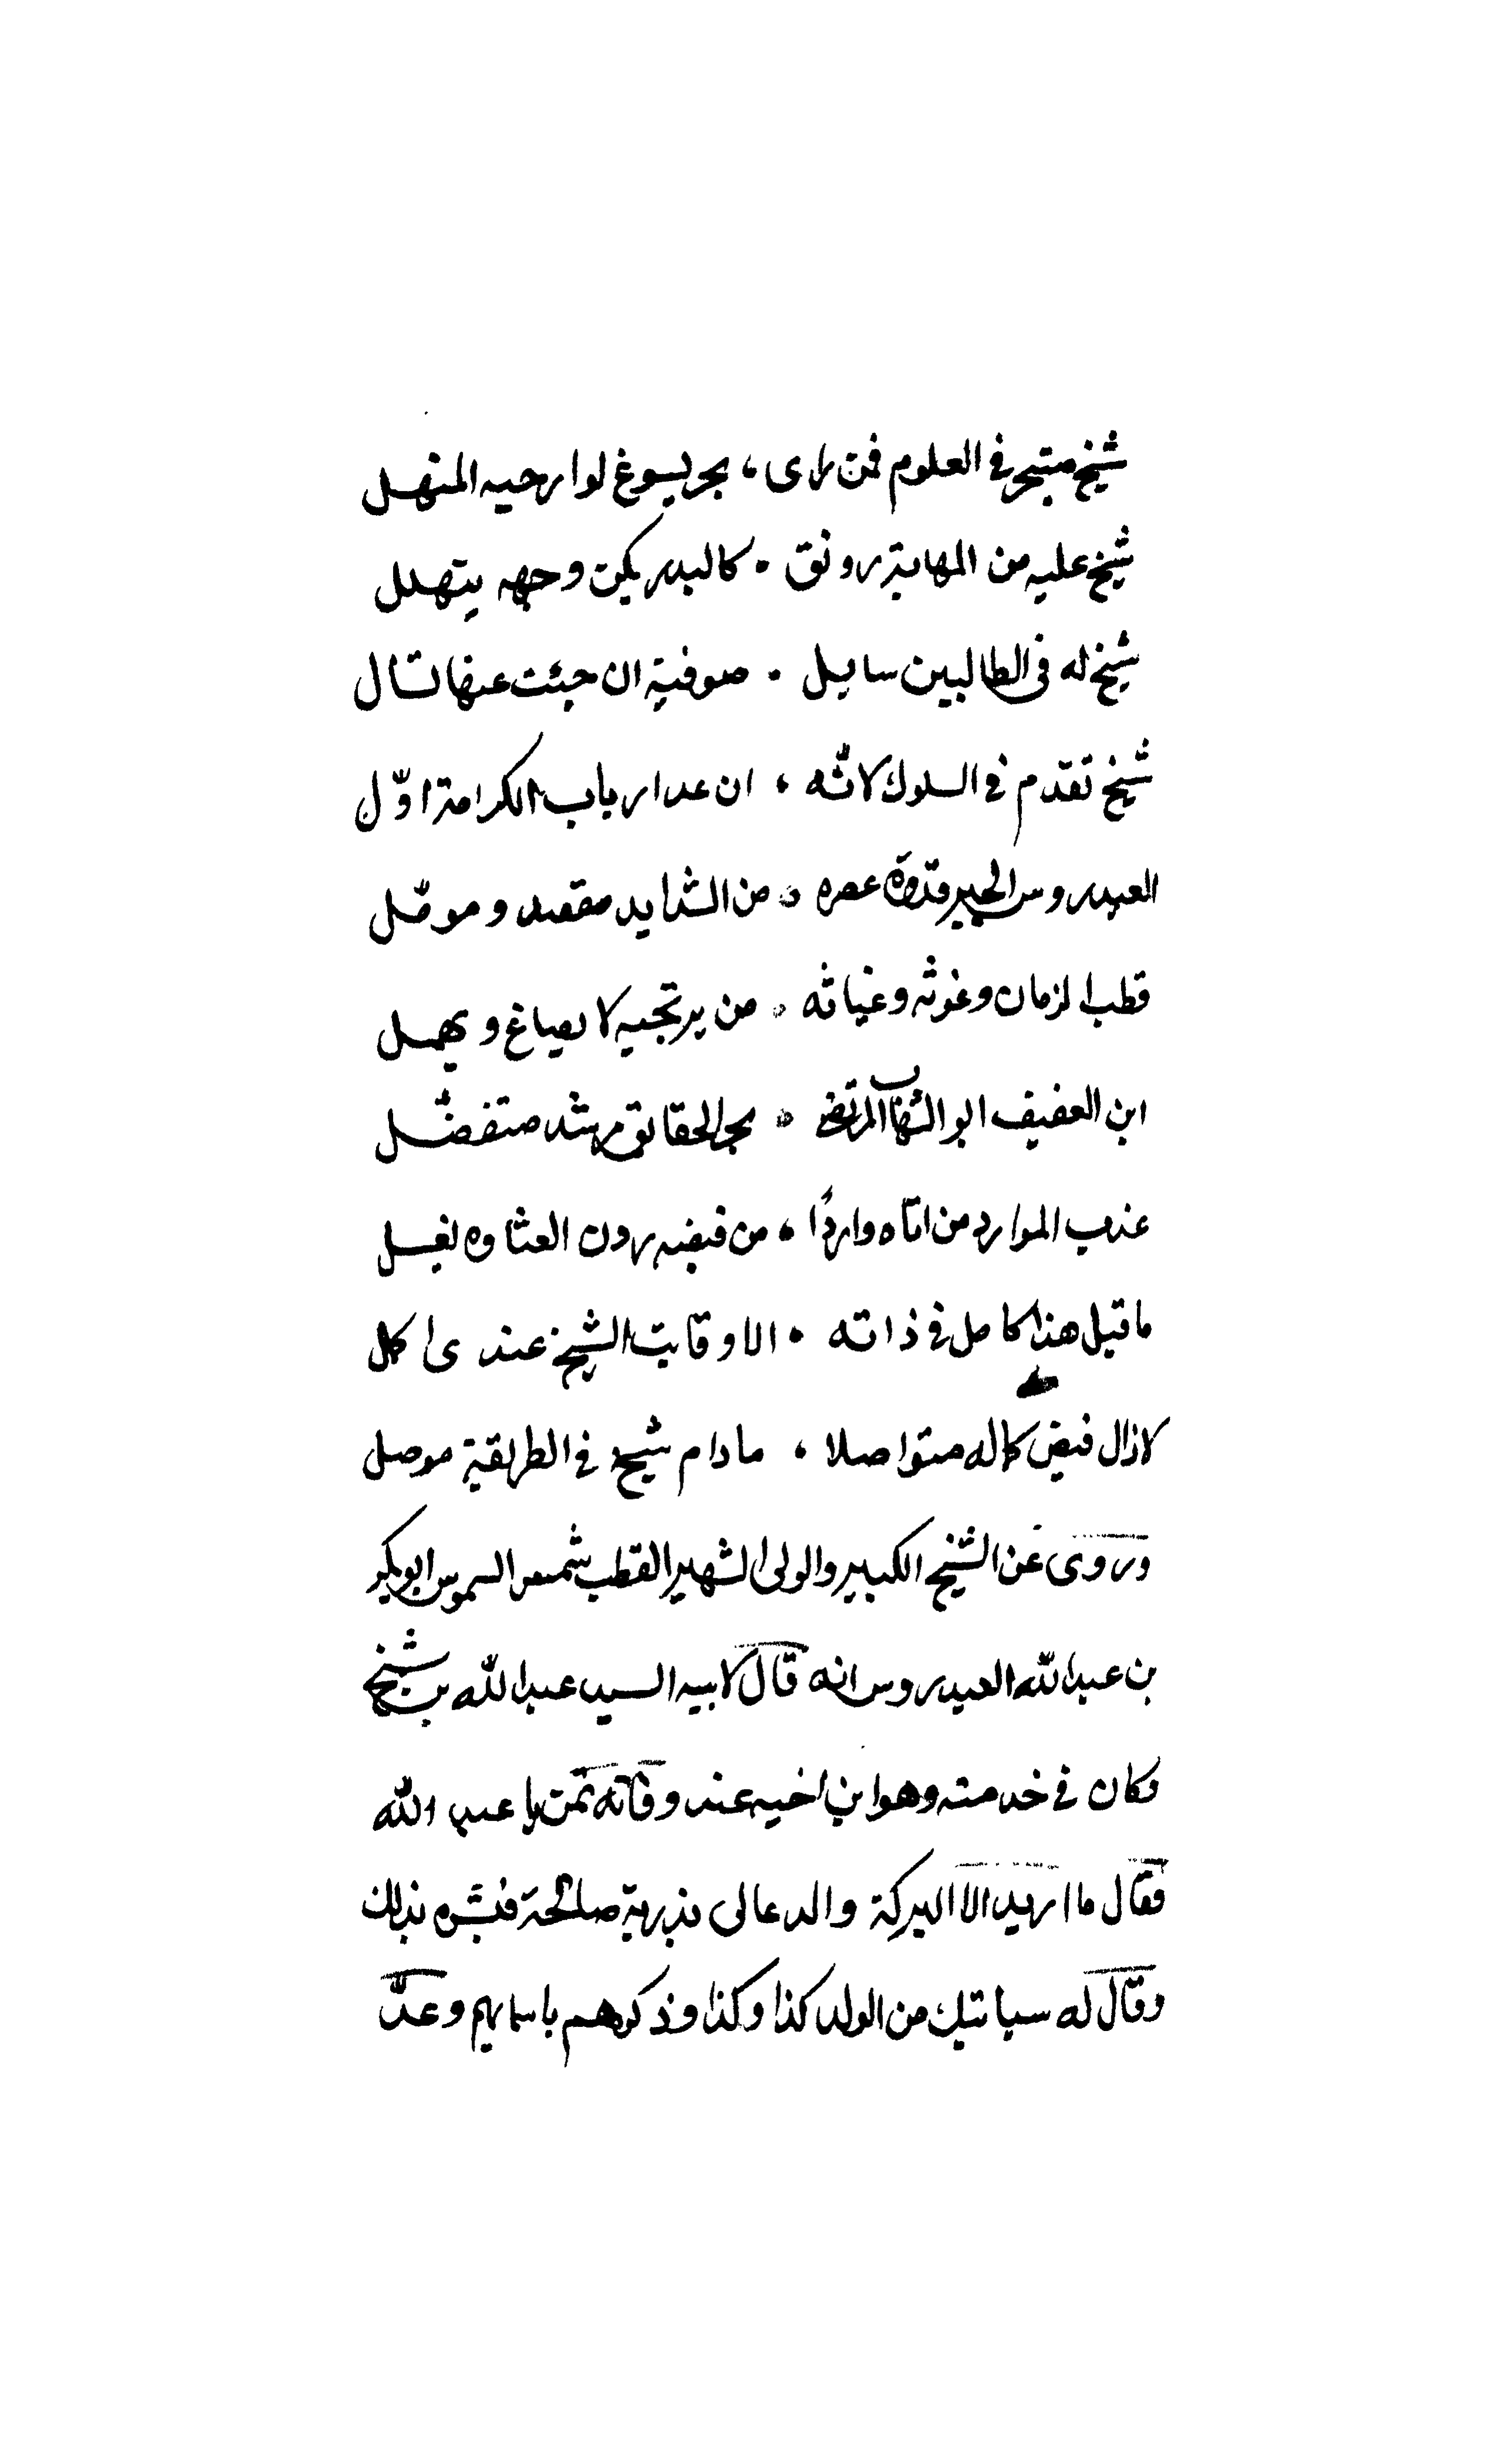 شيخ متبحر في العلوم فمن راى ، بحر يسوغ لوارديه المنهل
شيخ عليه من المهابة رونق . كالبدر يكن وجهه يتهلل
شيخ له في الطالبين سايل . صوفية ان جئت عنها تسال
شيخ تقدم في السلوك لانّه ، ان عد ارباب الكرامة اوّل
العيدروس الحبر قدوة عصره ، من الشدايد مقصد وموئل
قطب الزمان وغوثه وغياثه . من يرتجيه لا يصاغ ويهمل
ابن العفيف ابو الشهاب المرتضى ، بحر الحقايق مرشد متفضّل
عذب الموارد من اتاه واردًا ، من فيضه ردن
ما قيل هذا كامل في ذاته . الا وقايت الشيخ عندى اكمل
لا زال فيض كماله متواصلا ، مادام شيخ في الطريقة موصل
وروى عن الشيخ الكبير والولى الشهير القطب شمس الشموس ابو بكر
بن عبدالله العيدروس انه قال لابيه السيد عبدالله بن شيخ
فكان في خدمته وهو ابن اخيه عند وفاته تمن يا عبد الله
فقال ما اريد الا البركة والدعا لى بذرية صالحة فبشره بذلك
وقال له سياتيك من الولد كذا وكذا وذكرهم باسمايهم وعدّ